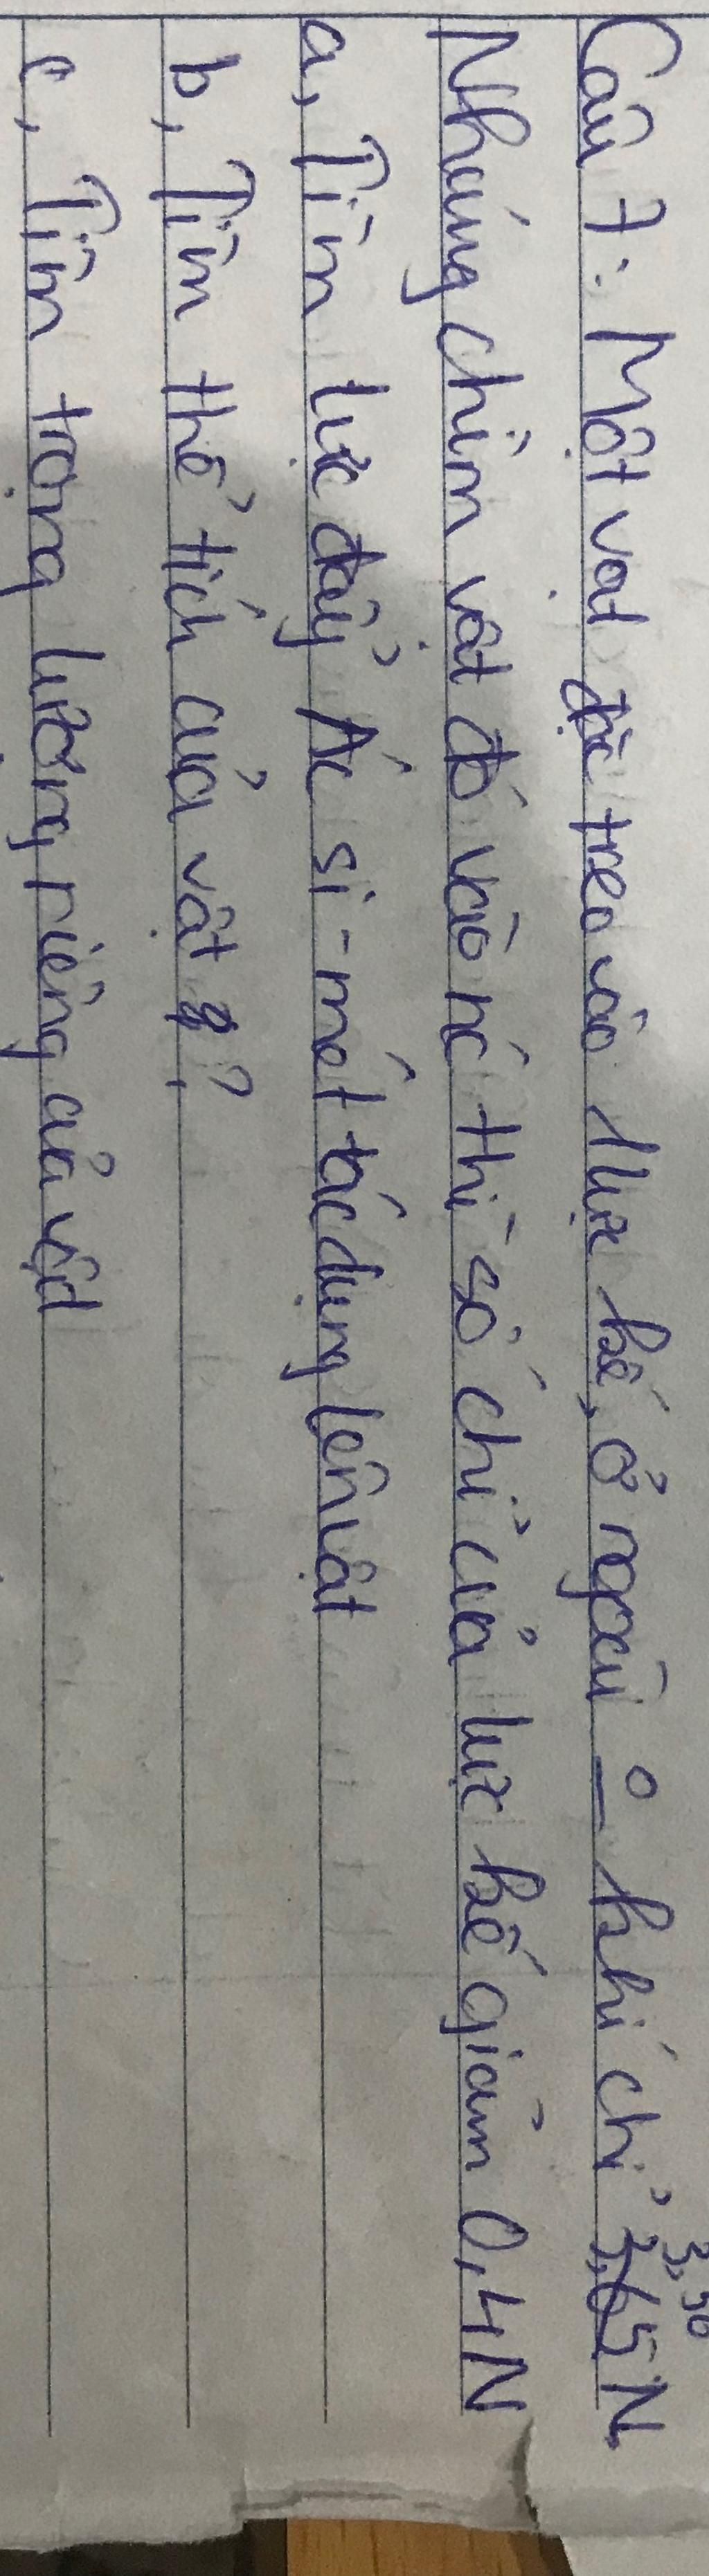 Câu 7: Một vật đặc treo vào lực kế, ở ngoài o khí chỉ 3,50 N.
Nhúng chìm vật đó vào nc thì số chỉ của lực kế giảm 0,4N
a, Tìm lực đẩy Ác si-mét tác dụng lên vật
b, Tìm thể tích của vật ?
c, Tìm trọng lượng riêng của vật